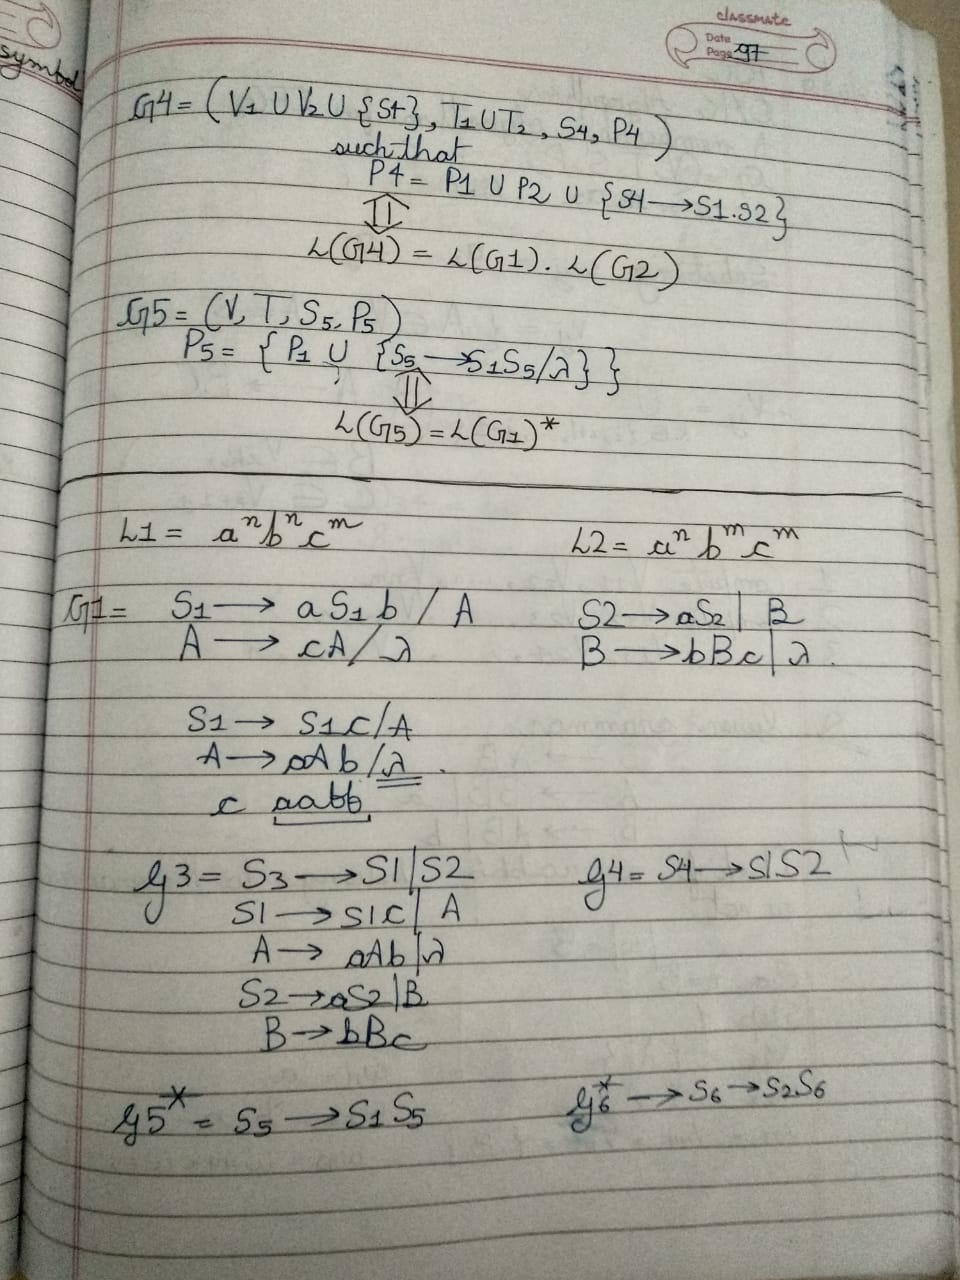 classmate
Date
Page 97
symbol
G4 = (V1 U V2 U {S4}, T1 U T2, S4, P4)
such that
P4 = P1 U P2 U {S4 → S1.S2}
⇕
L(G4) = L(G1). L(G2)
G5 = (V, T, S5, P5)
P5 = { P1 U {S5 → S1S5/λ} }
⇕
L(G5) = L(G1)*
L1 = aⁿbⁿcᵐ L2 = aⁿbᵐcᵐ
G1 = S1 → aS1b / A S2 → aS2 | B
A → cA/λ B → bBc | λ.
S1 → S1c/A
A → aAb/λ.
c aabb
G3 = S3 → S1|S2 G4 = S4 → S1S2
S1 → S1c | A
A → aAb|λ
S2 → aS2|B
B → bBc
G5* = S5 → S1S5 G6* → S6 → S2S6